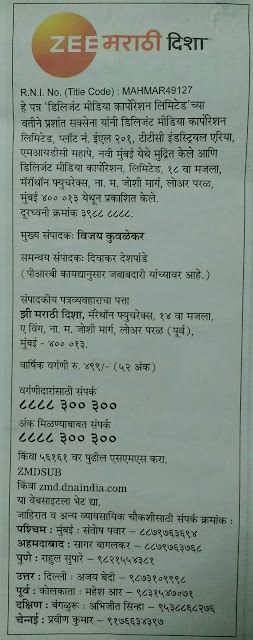 ZEE मराठी दिशा
R.N.I. No. (Title Code) : MAHMAR49127
हे पत्र 'डिलिजंट मीडिया कार्पोरेशन लिमिटेड'च्या
वतीने प्रशांत सक्सेना यांनी डिलिजंट मीडिया कार्पोरेशन
लिमिटेड, प्लॉट नं. ईएल २०१, टीटीसी इंडस्ट्रियल एरिया,
एमआयडीसी महापे, नवी मुंबई येथे मुद्रित केले आणि
डिलिजंट मीडिया कार्पोरेशन, लिमिटेड, १८ वा मजला,
मॅरॅथॉन फ्युचरेक्स, ना. म. जोशी मार्ग, लोअर परळ,
मुंबई ४०० ०१३ येथून प्रकाशित केले.
दूरध्वनी क्रमांक ३९८८ ८८८८.
मुख्य संपादकः विजय कुवळेकर
समन्वय संपादकः दिवाकर देशपांडे
(पीआरबी कायद्यानुसार जबाबदारी यांच्यावर आहे.)
संपादकीय पत्रव्यवहाराचा पत्ता
झी मराठी दिशा, मॅरेथॉन फ्युचरेक्स, १४ वा मजला,
ए विंग, ना. म. जोशी मार्ग, लोअर परळ (पूर्व),
मुंबई - ४०० ०१३.
वार्षिक वर्गणी रु. ४९९/- (५२ अंक)
वर्गणीदारांसाठी संपर्क
८८८८ ३०० ३००
अंक मिळण्याबाबत संपर्क
८८८८ ३०० ३००
किंवा ५६१६१ वर पुढील एसएमएस करा.
ZMDSUB
किंवा zmd.dnaindia.com
या वेबसाइटला भेट द्या.
जाहिरात व अन्य व्यावसायिक चौकशीसाठी संपर्क क्रमांक :
पश्चिम : मुंबई : संतोष पवार – ८८७९७६३६९४
अहमदाबाद : सागर बागलकर – ८८७९७६३७६८
पुणे : राहुल सुपारे – ९८२१५५४३८१
उत्तर : दिल्ली : अजय बेदी – ९८७३१०९९९८
पूर्व : कोलकाता : महेश आर – ९८३१५४७०७१
दक्षिण : बंगळूरू : अभिजीत सिन्हा – ९५३८८६८२७६
चेन्नई : प्रवीण कुमार – ९१७६६३४३९७